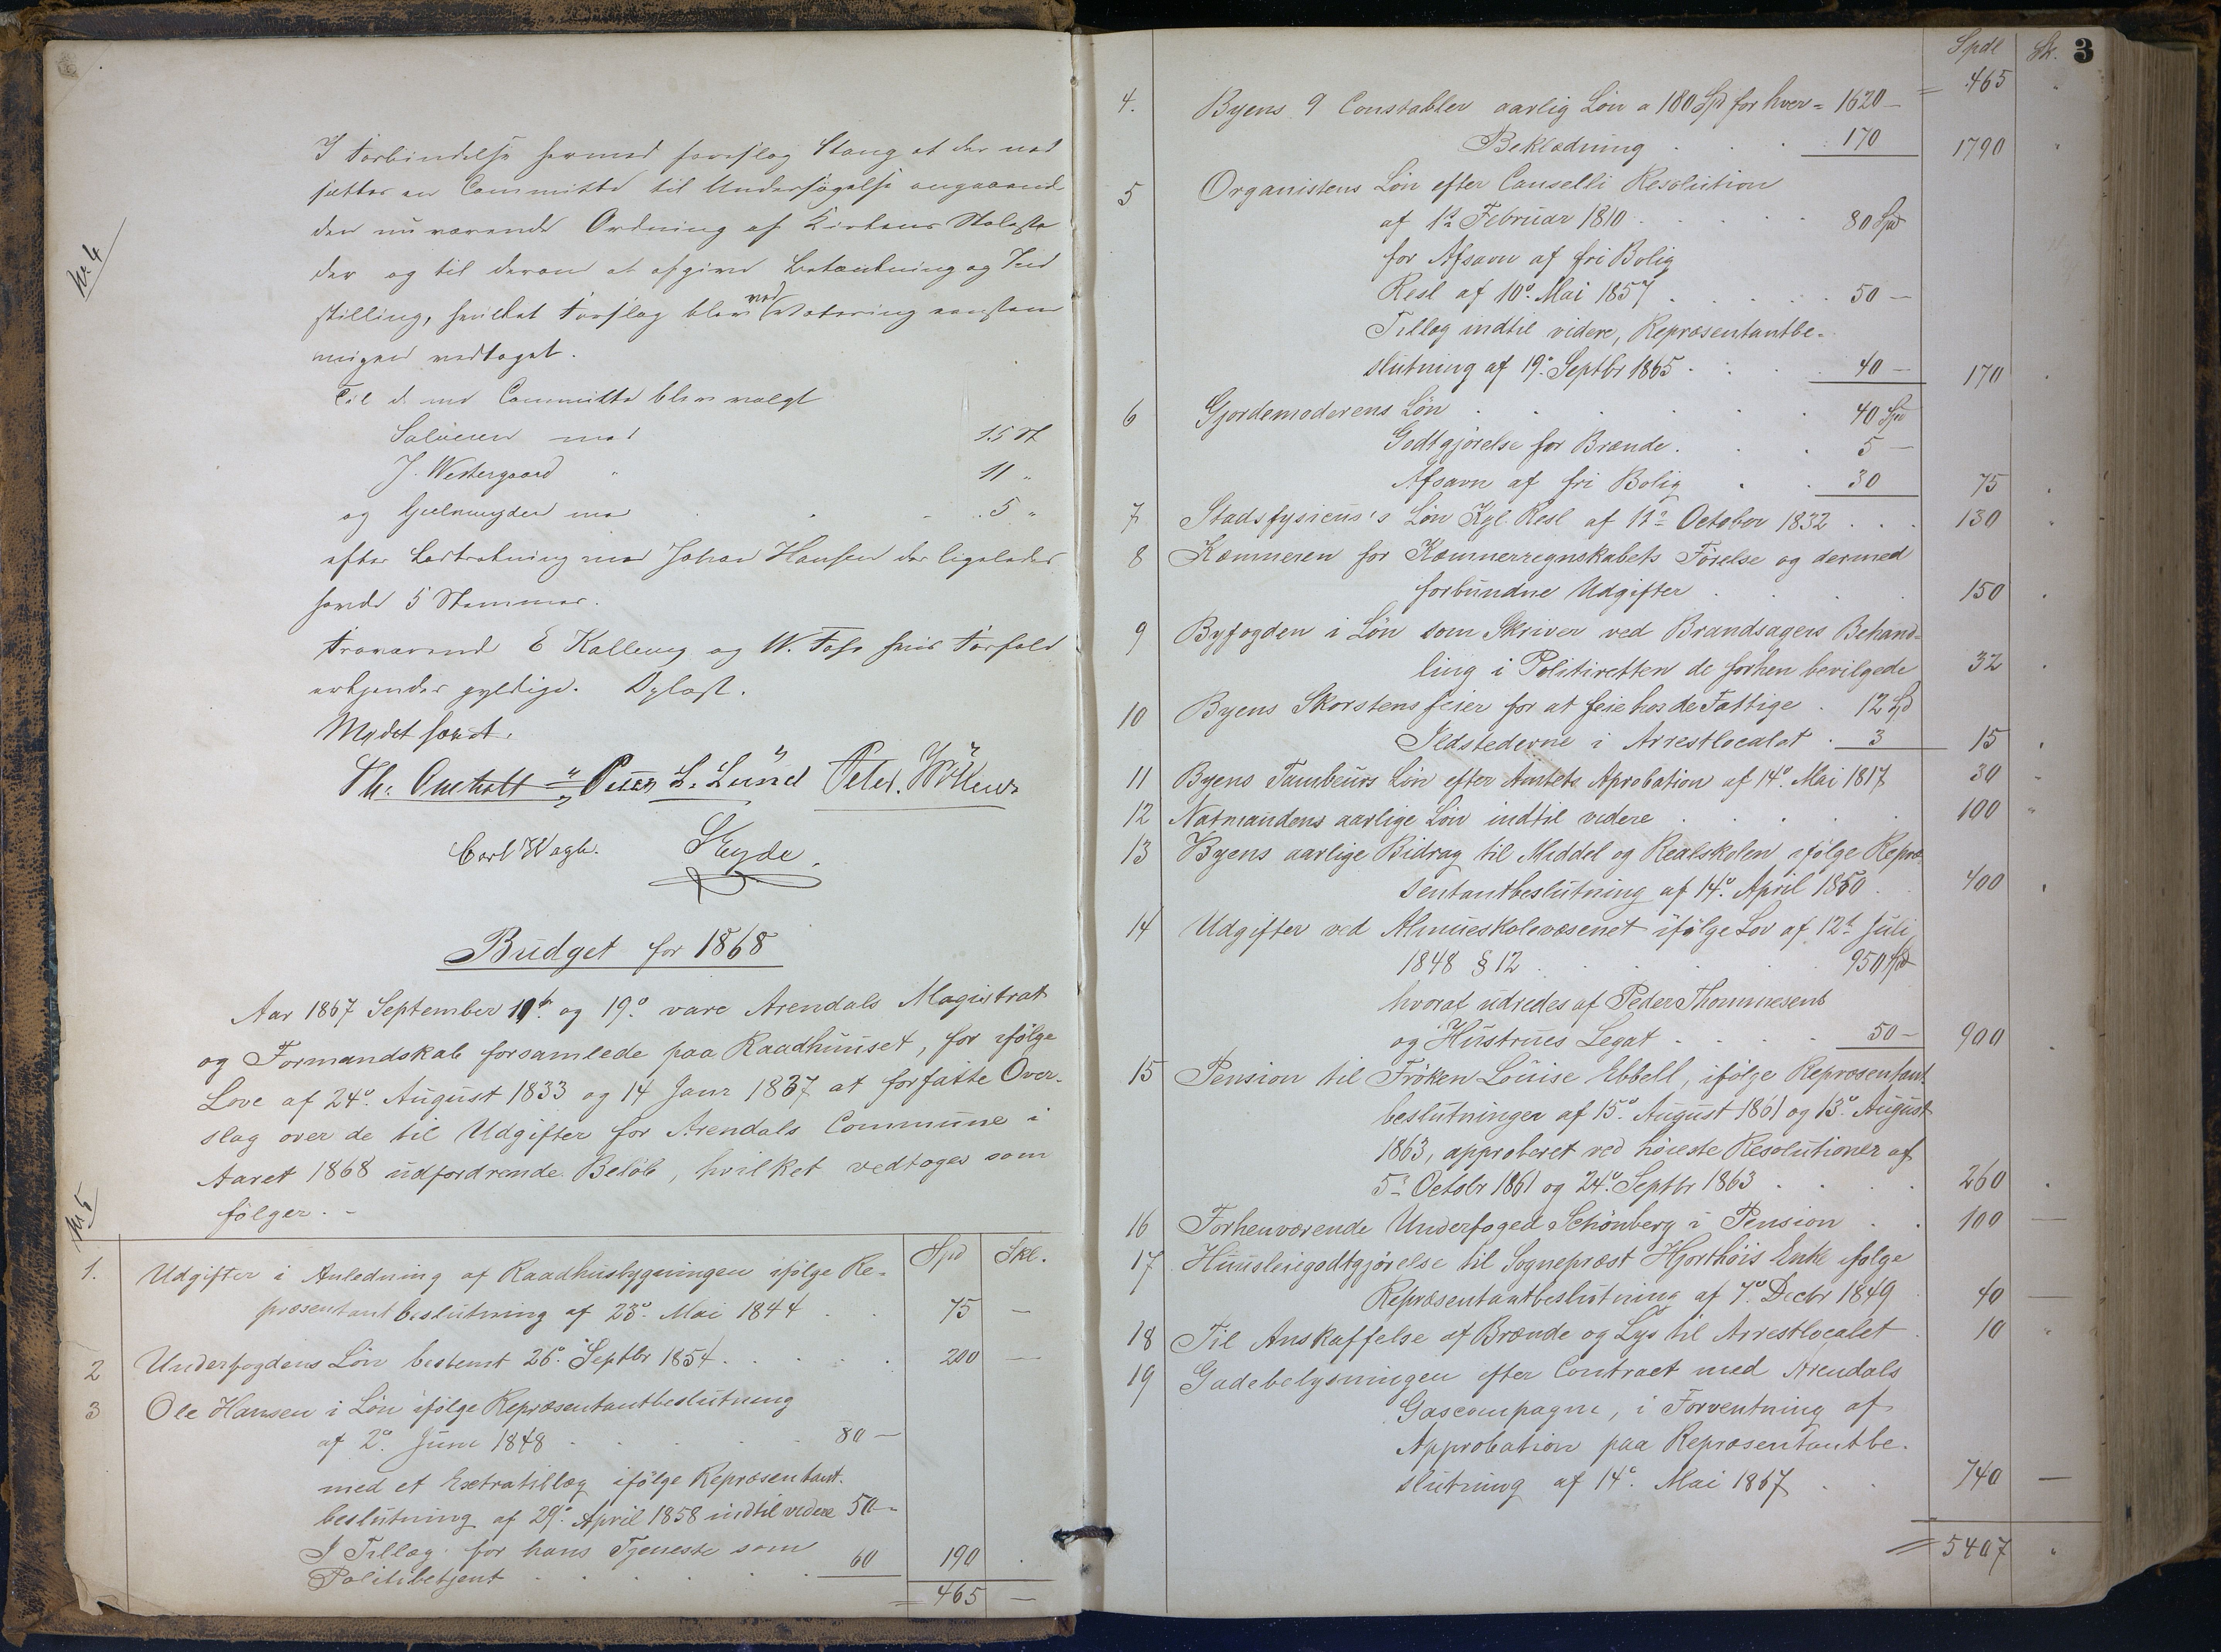 No 4
I Forbindelse hermed foreslog Stang at der ned
sættes en Committe til Undersøgelse angaaend
den nu værende Ordning af Kirkens Stolesta
der og til derom at afgive Betænkning og Ind
stilling, hvilket Forslag blev ved Votering eenstem
migen vedtaget.
Til d. nne Committe blev valgt
Salvesen med 15 St
J. Westergaard " 11 "
og Gjelmuyden med 5 "
efter Lodtrækning med Johan Hansen der ligeledes
havde 5 Stemmer.
Fraværende E Kallevig og W. Foss hvis Forfald
erkjendes gyldige. Oplæst.
Mødet hævet.
Th. Omholt Peter L. Lund Peter
Carl Eyde
Budget for 1868
Aar 1867 September og 19º vare Arendals Magistrat
og Formandskab forsamlede paa Raadhuuset, for ifølge
Love af 24º August 1833 og 14 Janr 1837 at forfatte Over-
slag over de til Udgifter for Arendals Commune i
Aaret 1868 udfordrende Beløb, hvilket vedtoges som
følger. -
No 5
Spd Skl.
1. Udgifter i Anledning af Raadhusbygningen ifølge Re-
præsentantbeslutning af 23º Mai 1844 . . 75 —
2 Underfogdens Løn bestemt 26º Septbr 1854 . . . . . 200 —
3 Ole Hansen i Løn ifølge Repræsentantbeslutning
af 2º Juni 1848 . . . . . 80 —
med et Extratillæg ifølge Repræsentant-
beslutning af 29º April 1858 indtil videre 50 —
I Tillæg for hans Tjeneste som
Politibetjent . . . . . . 60 190 .
= 465 —
3
Spdl Sk.
= 465 "
4. Byens 9 Constabler aarlig Løn a 180 Spd for hver = 1620 —
Beklædning . . . 170 1790 "
5 Organistens Løn efter Cancelli Resolution
af 1ste Februar 1810 . . . . 80 Spd
for Afsavn af fri Bolig
Resl af 10º Mai 1857 . . . . . 50 —
Tillæg indtil videre, Repræsentantbe-
slutning af 19º Septbr 1865 . . . 40 — 170 .
6 Gjordemoderens Løn . . . . . . 40 Spd
Godtgjørelse for Brænde . . . 5 —
Afsavn af fri Bolig . . 30 75 .
7 Stadsfysicus's Løn Kgl. Resl af 11º October 1832 . . . 130 "
8 Kæmneren for Kæmnerregnskabets Førelse og dermed
forbundne Udgifter . . . 150 .
9 Byfogden i Løn som Skriver ved Brandsagers Behand-
ling i Politiretten de forhen bevilgede 32 .
10 Byens Skorstensfeier for at feie hos de Fattige . 12 Spd
Ildstederne i Arrestlocalet . 3 15 .
11 Byens Tambeurs Løn efter Amtets Aprobation af 14º Mai 1817 30 -
12 Natmandens aarlige Løn indtil videre . . . . . 100 "
13 Byens aarlige Bidrag til Middel og Realskolen, ifølge Repræ-
sentantbeslutning af 14º April 1850 . . 400 .
14 Udgifter ved Almueskolevæsenet ifølge Lov af 12t Juli
1848 § 12 . . . . . . 950 Spd
hvoraf udredes af Peder Thommesens
og Hustrues Legat . . . . 50 — 900 .
15 Pension til Frøken Louise Ebbell, ifølge Repræsentant-
beslutninger af 15º August 1861 og 13º August
1863, approberet ved høieste Resolutioner af
5º Octobr 1861 og 24º Septbr 1863 . . . . 260 .
16 Forhenværende Underfoged Schönberg i Pension . . 100 —
17 Huusleiegodtgjørelse til Sogneprest Hjorthøis Enke ifølge
Repræsentantbeslutning af 7º Decbr 1849 40 —
18 Til Anskaffelse af Brænde og Lys til Arrestlocalet . 10 "
19 Gadebelysningen efter Contract med Arendals
Gascompagni, i Forventning af
Approbation paa Repræsentantbe-
slutning af 14º Mai 1867 . . 740 —
= 5407 "